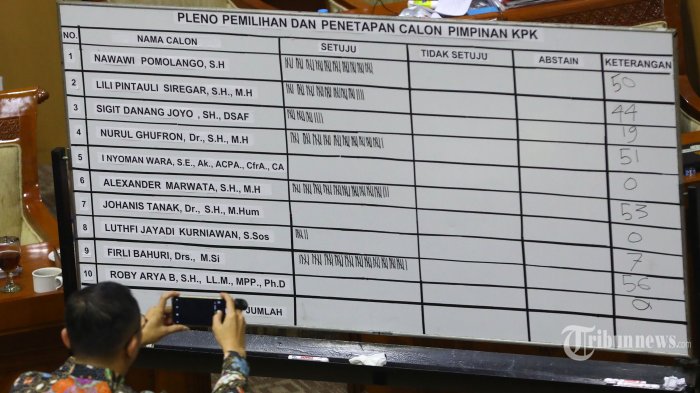 PLENO PEMILIHAN DAN PENETAPAN CALON PIMPINAN KPK
NO. NAMA CALON SETUJU TIDAK SETUJU ABSTAIN KETERANGAN
1 NAWAWI POMOLANGO, S.H 50
2 LILI PINTAULI SIREGAR, S.H., M.H 44
3 SIGIT DANANG JOYO , SH., DSAF 19
4 NURUL GHUFRON, Dr., S.H., M.H 51
5 I NYOMAN WARA, S.E., Ak., ACPA., CfrA., CA 0
6 ALEXANDER MARWATA, S.H., M.H 53
7 JOHANIS TANAK, Dr., S.H., M.Hum 0
8 LUTHFI JAYADI KURNIAWAN, S.Sos 7
9 FIRLI BAHURI, Drs., M.Si 56
10 ROBY ARYA B, S.H., LL.M., MPP., Ph.D 0
JUMLAH
Tribunnews.com